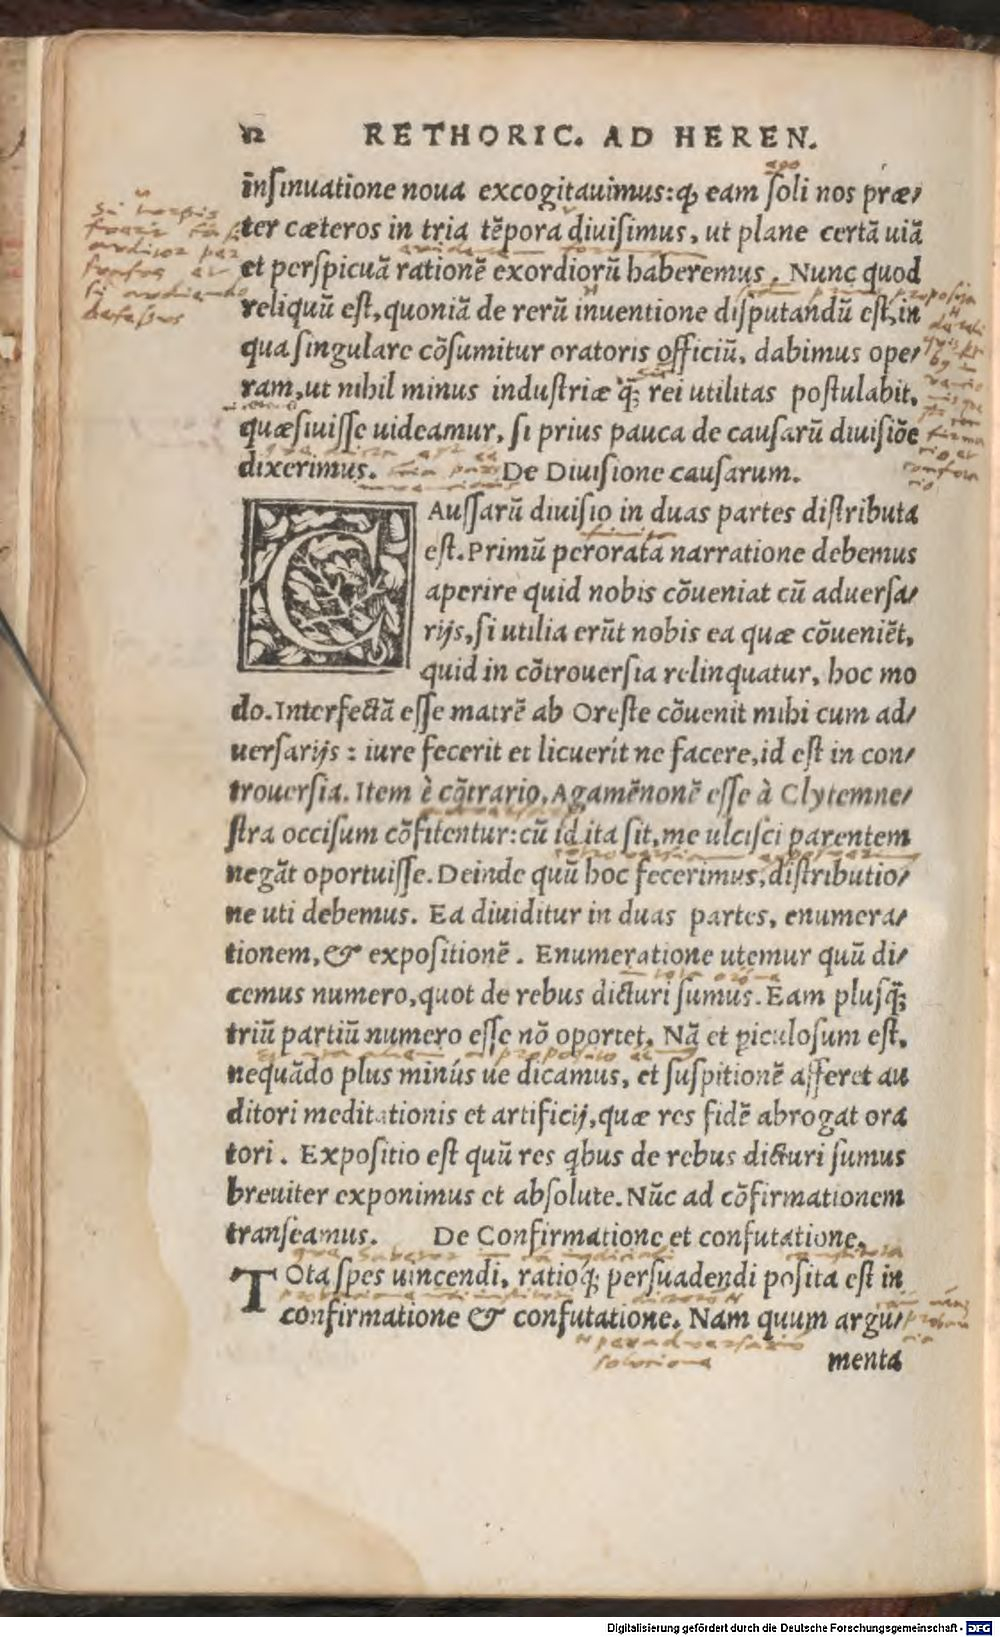 12 RETHORIC. AD HEREN.
insinuatione noua excogitauimus:ꝙ eam soli nos præ/
ter cæteros in tria tẽpora diuisimus, ut plane certã uiã
et perspicuã rationẽ exordiorũ haberemus. Nunc quod
reliquũ est, quoniã de rerũ inuentione disputandũ est, in
qua singulare cõsumitur oratoris officiũ, dabimus ope/
ram, ut nihil minus industriæ q̃; rei utilitas postulabit,
quæsiuisse uideamur, si prius pauca de causarũ diuisiõe
dixerimus. De Diuisione causarum.
CAussarũ diuisio in duas partes distributa
est. Primũ perorata narratione debemus
aperire quid nobis cõueniat cũ aduersa/
rijs, si utilia erũt nobis ea quæ cõueniẽt,
quid in cõtrouersia relinquatur, hoc mo
do. Interfectã esse matrẽ ab Oreste cõuenit mihi cum ad/
uersarijs: iure fecerit et licuerit ne facere, id est in con/
trouersia. Item è cõtrario, Agamẽnonẽ esse à Clytemne/
stra occisum cõfitentur: cũ id ita sit, me ulcisci parentem
negãt oportuisse. Deinde quũ hoc fecerimus, distributio/
ne uti debemus. Ea diuiditur in duas partes, enumera/
tionem, & expositionẽ. Enumeratione utemur quũ di/
cemus numero, quot de rebus dicturi sumus. Eam plusq̃;
triũ partiũ numero esse nõ oportet. Nã et ꝑiculosum est,
nequãdo plus minús ue dicamus, et suspitionẽ afferet au
ditori meditationis et artificij, quæ res fidẽ abrogat ora
tori. Expositio est quũ res qbus de rebus dicturi sumus
breuiter exponimus et absolute. Nũc ad cõfirmationem
transeamus. De Confirmatione et confutatione.
TOta spes uincendi, ratioq́; persuadendi posita est in
confirmatione & confutatione. Nam quum argu/
menta
Digitalisierung gefördert durch die Deutsche Forschungsgemeinschaft - DFG